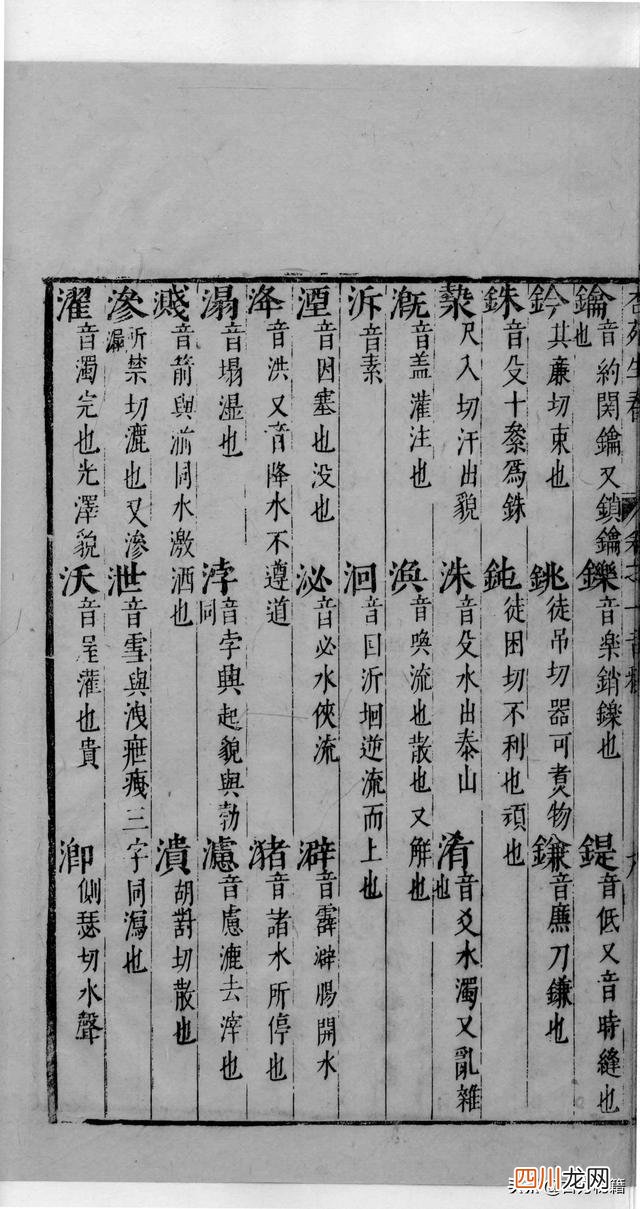 鑰音約関鑰又鎖鑰也 鑠音楽銷鑠也 鍉音低又音時縫也
鈐其廉切束也 銚徒吊切器可煑物 鎌音廉刀鎌也
銖音殳十絫爲銖 鈍徒困切不利也頑也
漐尺入切汗出貌 洙音殳水出泰山 淆音爻水濁又亂雜也
漑音盖灌注也 渙音喚流也散也又解也
泝音素 洄音囘泝洄逆流而上也
湮音因塞也没也 泌音必水俠流 澼音霹澼腸開水
洚音洪又音降水不遵道 潴音諸水所停也
溻音塌湿也 浡音孛興起貌與勃同 濾音慮漉去滓也
濺音箭與湔同水激洒也 潰胡對切散也
滲所禁切漉也又滲漏 泄音雪與洩疶痩三字同瀉也
濯音濁完也光澤貌 沃音呈灌也貴 瀄側瑟切水聲
四川龙网